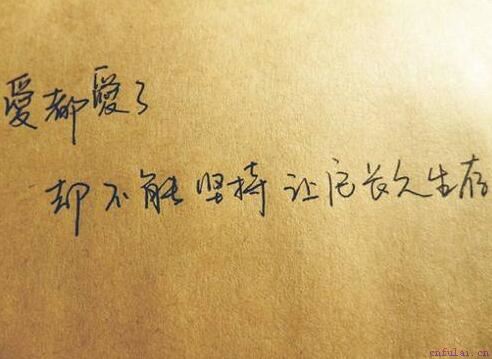 愛都愛了
却不能坚持让它长久生存
cnfulai.cn